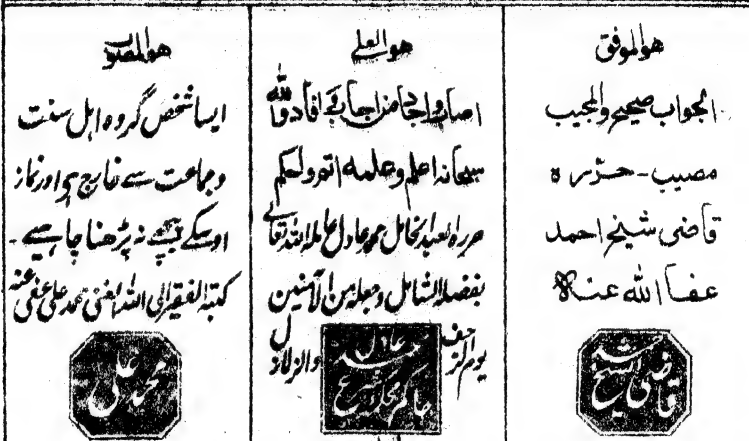 هو الموفق
الجواب صحيح والمجيب
مصيب - حرره
قاضی شیخ احمد
عفا الله عنه
قاضی الشیخ
هو العلي
اصاب واجاد من اجاب وافاد والله
سبحانه اعلم وعلمه اتم واحكم
حرره العبد الخامل محمد عادل عامله الله تعالى
بفضله الشامل وجعله من الآمنين
يوم الزحف والزلازل
محمد عادل
حاکم محکمہ شرع
هو المصوب
ایسا شخص گروہ اہل سنت
و جماعت سے خارج ہی اور نماز
اوسکے پیچھے نہ پڑھنا چاہیے -
کتبہ الفقیر الی اللہ الغنی محمد علی عفی عنہ
محمد علی